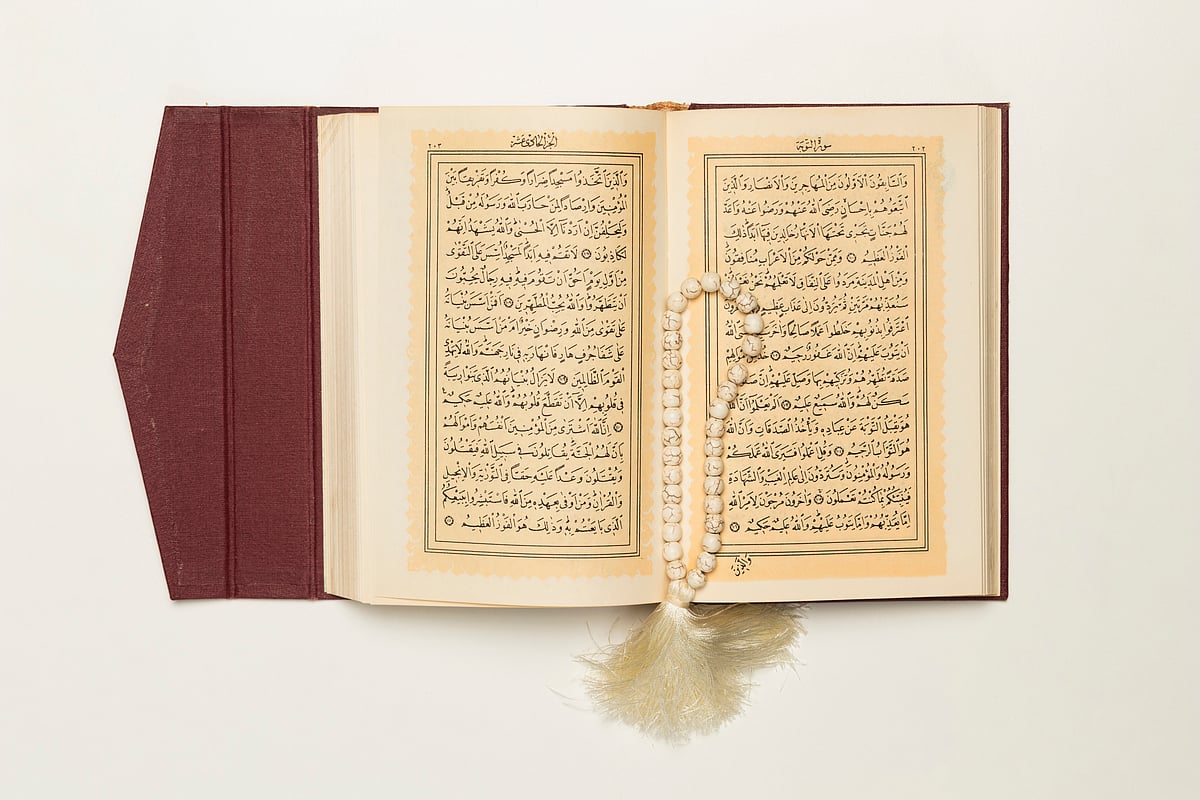 سورة التوبة ٢٠٢
وَالسَّابِقُونَ الْاَوَّلُونَ مِنَ الْمُهَاجِرِينَ وَالْاَنْصَارِ وَالَّذِينَ
اتَّبَعُوهُمْ بِاِحْسَانٍ رَضِيَ اللّٰهُ عَنْهُمْ وَرَضُوا عَنْهُ وَاَعَدَّ
لَهُمْ جَنَّاتٍ تَجْرِي تَحْتَهَا الْاَنْهَارُ خَالِدِينَ فِيهَا اَبَدًا ذٰلِكَ
الْفَوْزُ الْعَظِيمُ وَمِمَّنْ حَوْلَكُمْ مِنَ الْاَعْرَابِ مُنَافِقُونَ
وَمِنْ اَهْلِ الْمَدِينَةِ مَرَدُوا عَلَى النِّفَاقِ لَا تَعْلَمُهُمْ نَحْنُ
سَنُعَذِّبُهُمْ مَرَّتَيْنِ ثُمَّ يُرَدُّونَ اِلٰى عَذَابٍ عَظِيمٍ
اعْتَرَفُوا بِذُنُوبِهِمْ خَلَطُوا عَمَلًا صَالِحًا وَاٰخَرَ اللّٰهُ
اَنْ يَتُوبَ عَلَيْهِمْ اِنَّ اللّٰهَ غَفُورٌ رَحِيمٌ خُذْ
صَدَقَةً تُطَهِّرُهُمْ وَتُزَكِّيهِمْ بِهَا وَصَلِّ عَلَيْهِمْ اِنَّ
سَكَنٌ لَهُمْ وَاللّٰهُ سَمِيعٌ عَلِيمٌ اَلَمْ يَعْلَمُوا اَنَّ اللّٰهَ
هُوَ يَقْبَلُ التَّوْبَةَ عَنْ عِبَادِهِ وَيَأْخُذُ الصَّدَقَاتِ وَاَنَّ اللّٰهَ
هُوَ التَّوَّابُ الرَّحِيمُ وَقُلِ اعْمَلُوا فَسَيَرَى اللّٰهُ عَمَلَكُمْ
وَرَسُولُهُ وَالْمُؤْمِنُونَ وَسَتُرَدُّونَ اِلٰى عَالِمِ الْغَيْبِ وَالشَّهَادَةِ
فَيُنَبِّئُكُمْ بِمَا كُنْتُمْ تَعْمَلُونَ وَاٰخَرُونَ مُرْجَوْنَ لِاَمْرِ اللّٰهِ
اِمَّا يُعَذِّبُهُمْ وَاِمَّا يَتُوبُ عَلَيْهِمْ وَاللّٰهُ عَلِيمٌ حَكِيمٌ
وَالَّذِينَ
الجزء الحادي عشر ٢٠٣
وَالَّذِينَ اتَّخَذُوا مَسْجِدًا ضِرَارًا وَكُفْرًا وَتَفْرِيقًا بَيْنَ
الْمُؤْمِنِينَ وَاِرْصَادًا لِمَنْ حَارَبَ اللّٰهَ وَرَسُولَهُ مِنْ قَبْلُ
وَلَيَحْلِفُنَّ اِنْ اَرَدْنَا اِلَّا الْحُسْنٰى وَاللّٰهُ يَشْهَدُ اِنَّهُمْ
لَكَاذِبُونَ لَا تَقُمْ فِيهِ اَبَدًا لَمَسْجِدٌ اُسِّسَ عَلَى التَّقْوٰى
مِنْ اَوَّلِ يَوْمٍ اَحَقُّ اَنْ تَقُومَ فِيهِ فِيهِ رِجَالٌ يُحِبُّونَ
اَنْ يَتَطَهَّرُوا وَاللّٰهُ يُحِبُّ الْمُطَّهِّرِينَ اَفَمَنْ اَسَّسَ بُنْيَانَهُ
عَلٰى تَقْوٰى مِنَ اللّٰهِ وَرِضْوَانٍ خَيْرٌ اَمْ مَنْ اَسَّسَ بُنْيَانَهُ
عَلٰى شَفَا جُرُفٍ هَارٍ فَانْهَارَ بِهِ فِي نَارِ جَهَنَّمَ وَاللّٰهُ لَا يَهْدِي
الْقَوْمَ الظَّالِمِينَ لَا يَزَالُ بُنْيَانُهُمُ الَّذِي بَنَوْا رِيبَةً
فِي قُلُوبِهِمْ اِلَّا اَنْ تَقَطَّعَ قُلُوبُهُمْ وَاللّٰهُ عَلِيمٌ حَكِيمٌ
اِنَّ اللّٰهَ اشْتَرٰى مِنَ الْمُؤْمِنِينَ اَنْفُسَهُمْ وَاَمْوَالَهُمْ
بِاَنَّ لَهُمُ الْجَنَّةَ يُقَاتِلُونَ فِي سَبِيلِ اللّٰهِ فَيَقْتُلُونَ
وَيُقْتَلُونَ وَعْدًا عَلَيْهِ حَقًّا فِي التَّوْرٰيةِ وَالْاِنْجِيلِ
وَالْقُرْاٰنِ وَمَنْ اَوْفٰى بِعَهْدِهِ مِنَ اللّٰهِ فَاسْتَبْشِرُوا بِبَيْعِكُمُ
الَّذِي بَايَعْتُمْ بِهِ وَذٰلِكَ هُوَ الْفَوْزُ الْعَظِيمُ